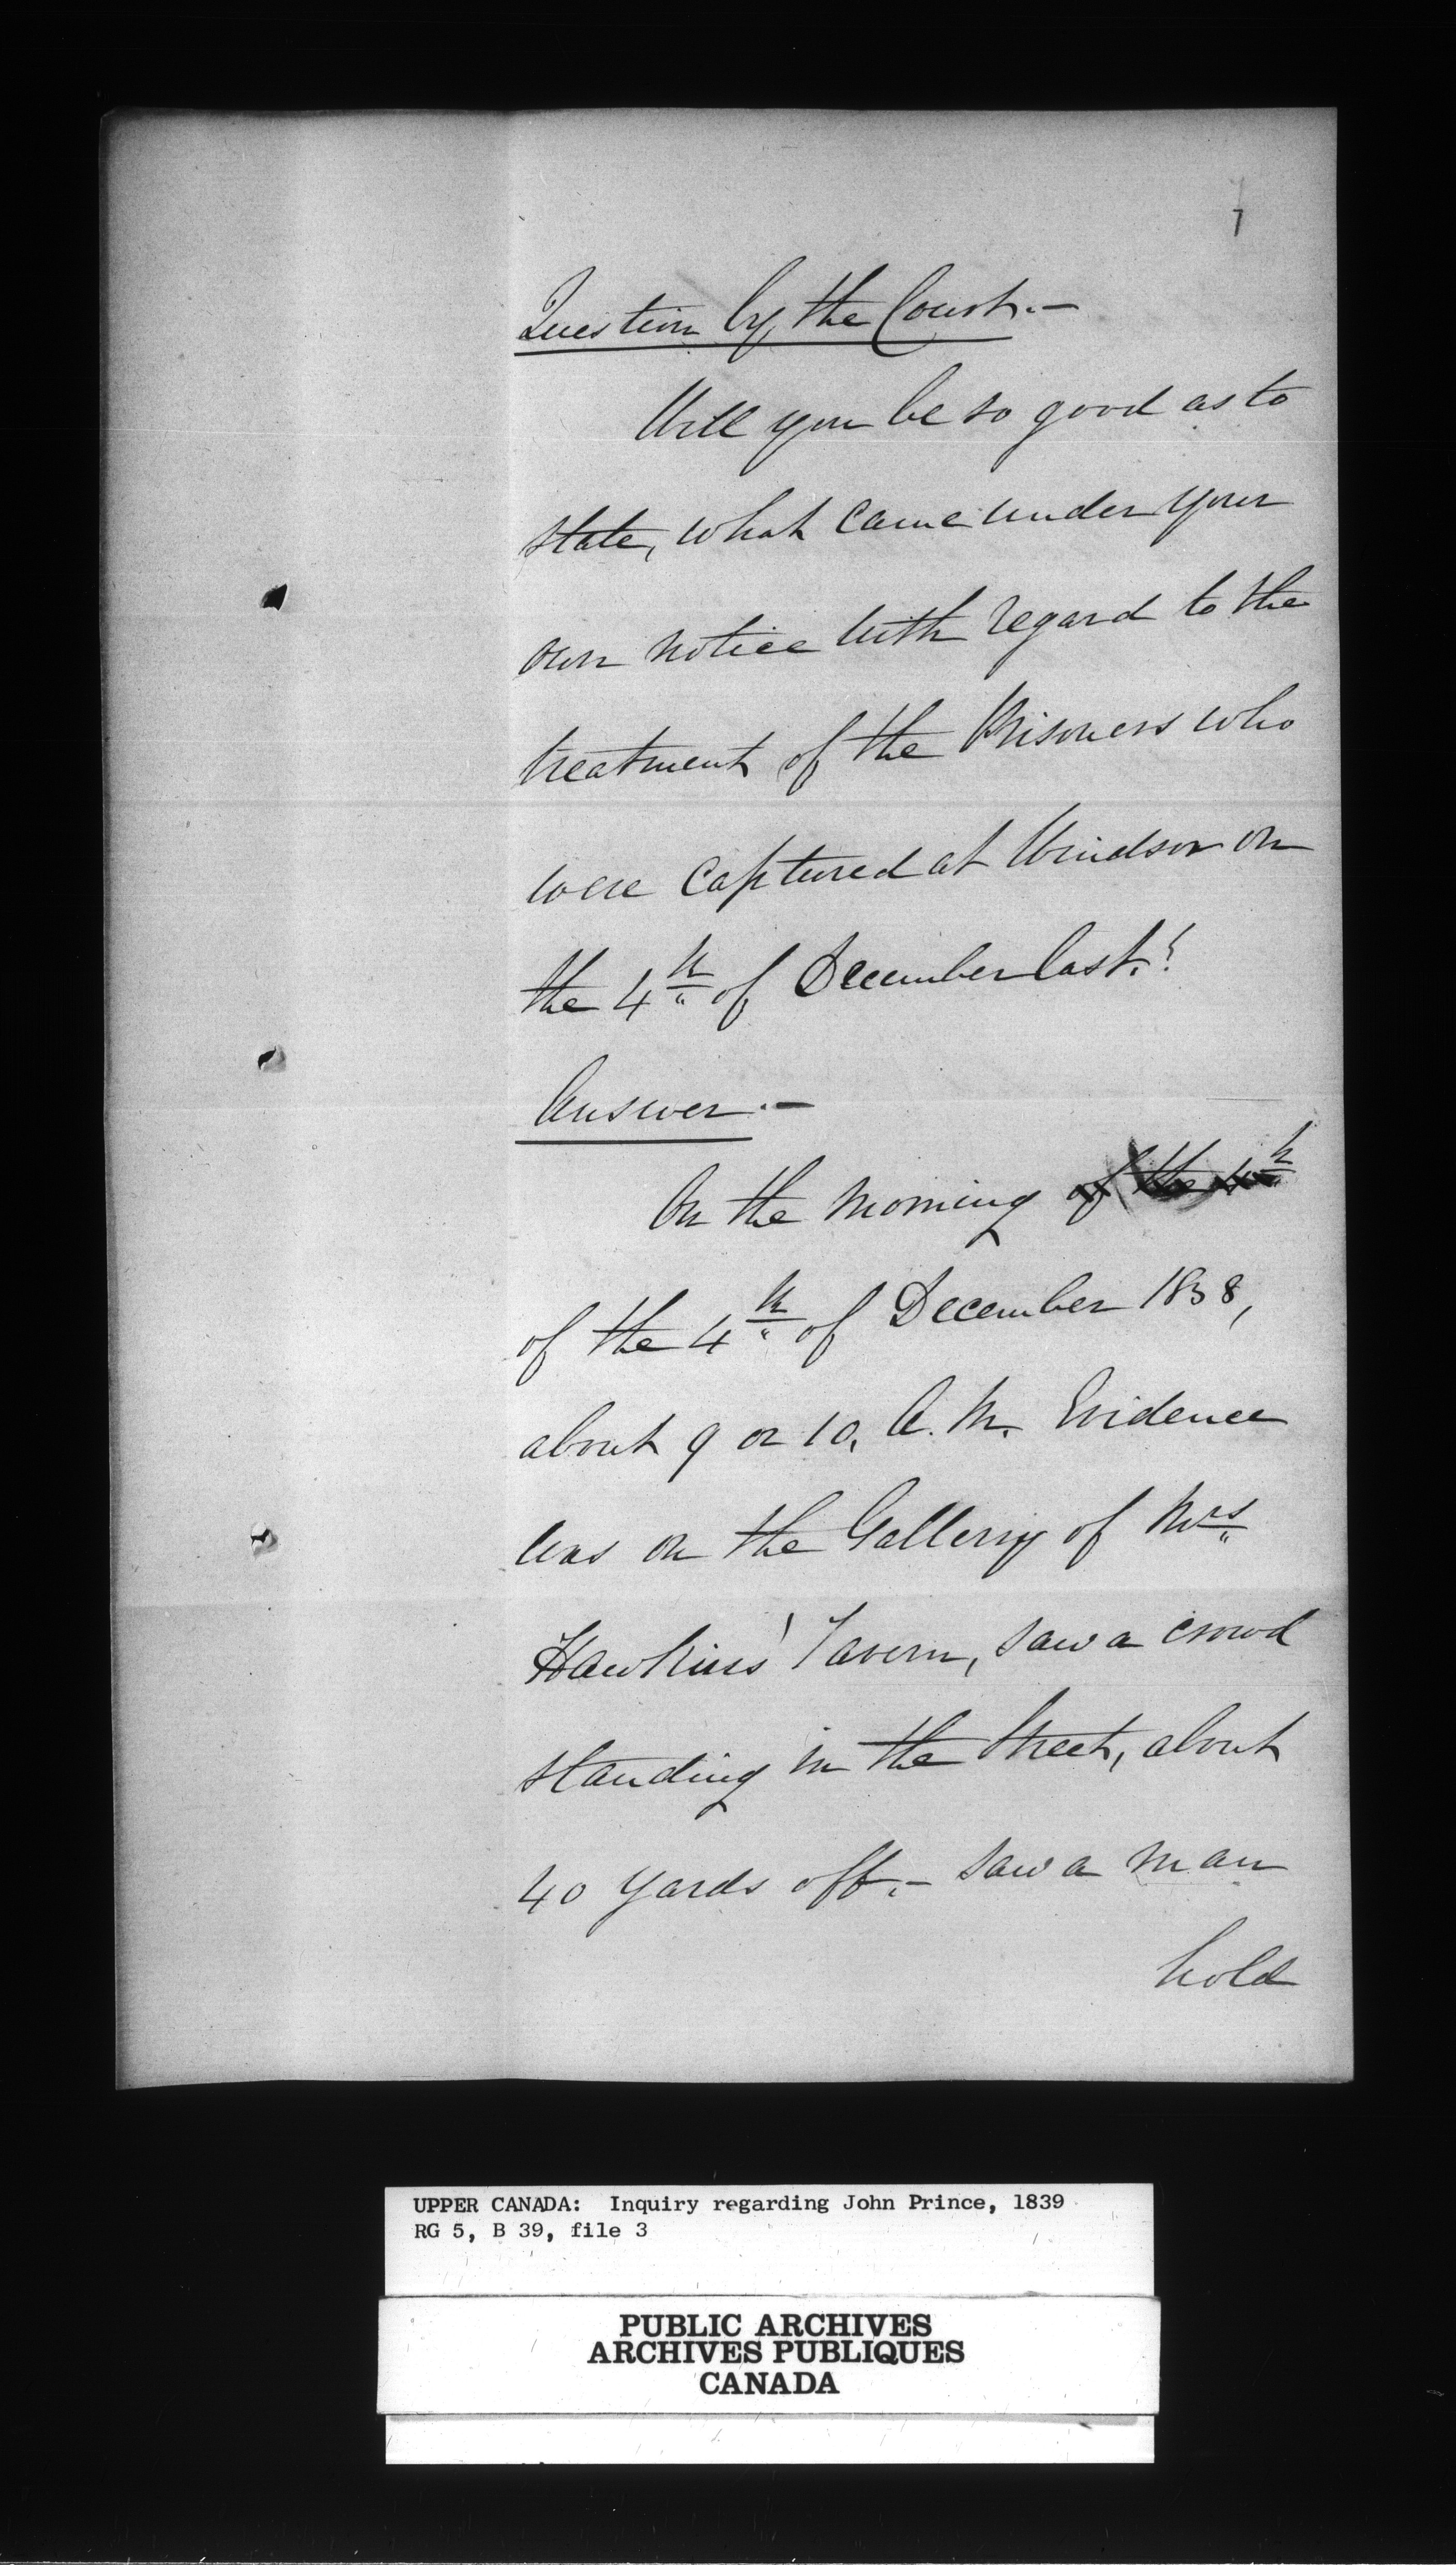 7
Question by the Court.—
Will you be so good as to
state, what came under your
own notice with regard to the
treatment of the Prisoners who
were captured at Windsor on
the 4th of December last.?
Answer.—
On the morning of the 4th
of the 4th of December 1838,
about 9 or 10, A.M. Evidence
was on the Gallery of Mrs
Hawkins' Tavern, saw a crowd
standing in the Street, about
40 yards off.— saw a man
hold
UPPER CANADA: Inquiry regarding John Prince, 1839
RG 5, B 39, file 3
PUBLIC ARCHIVES
ARCHIVES PUBLIQUES
CANADA